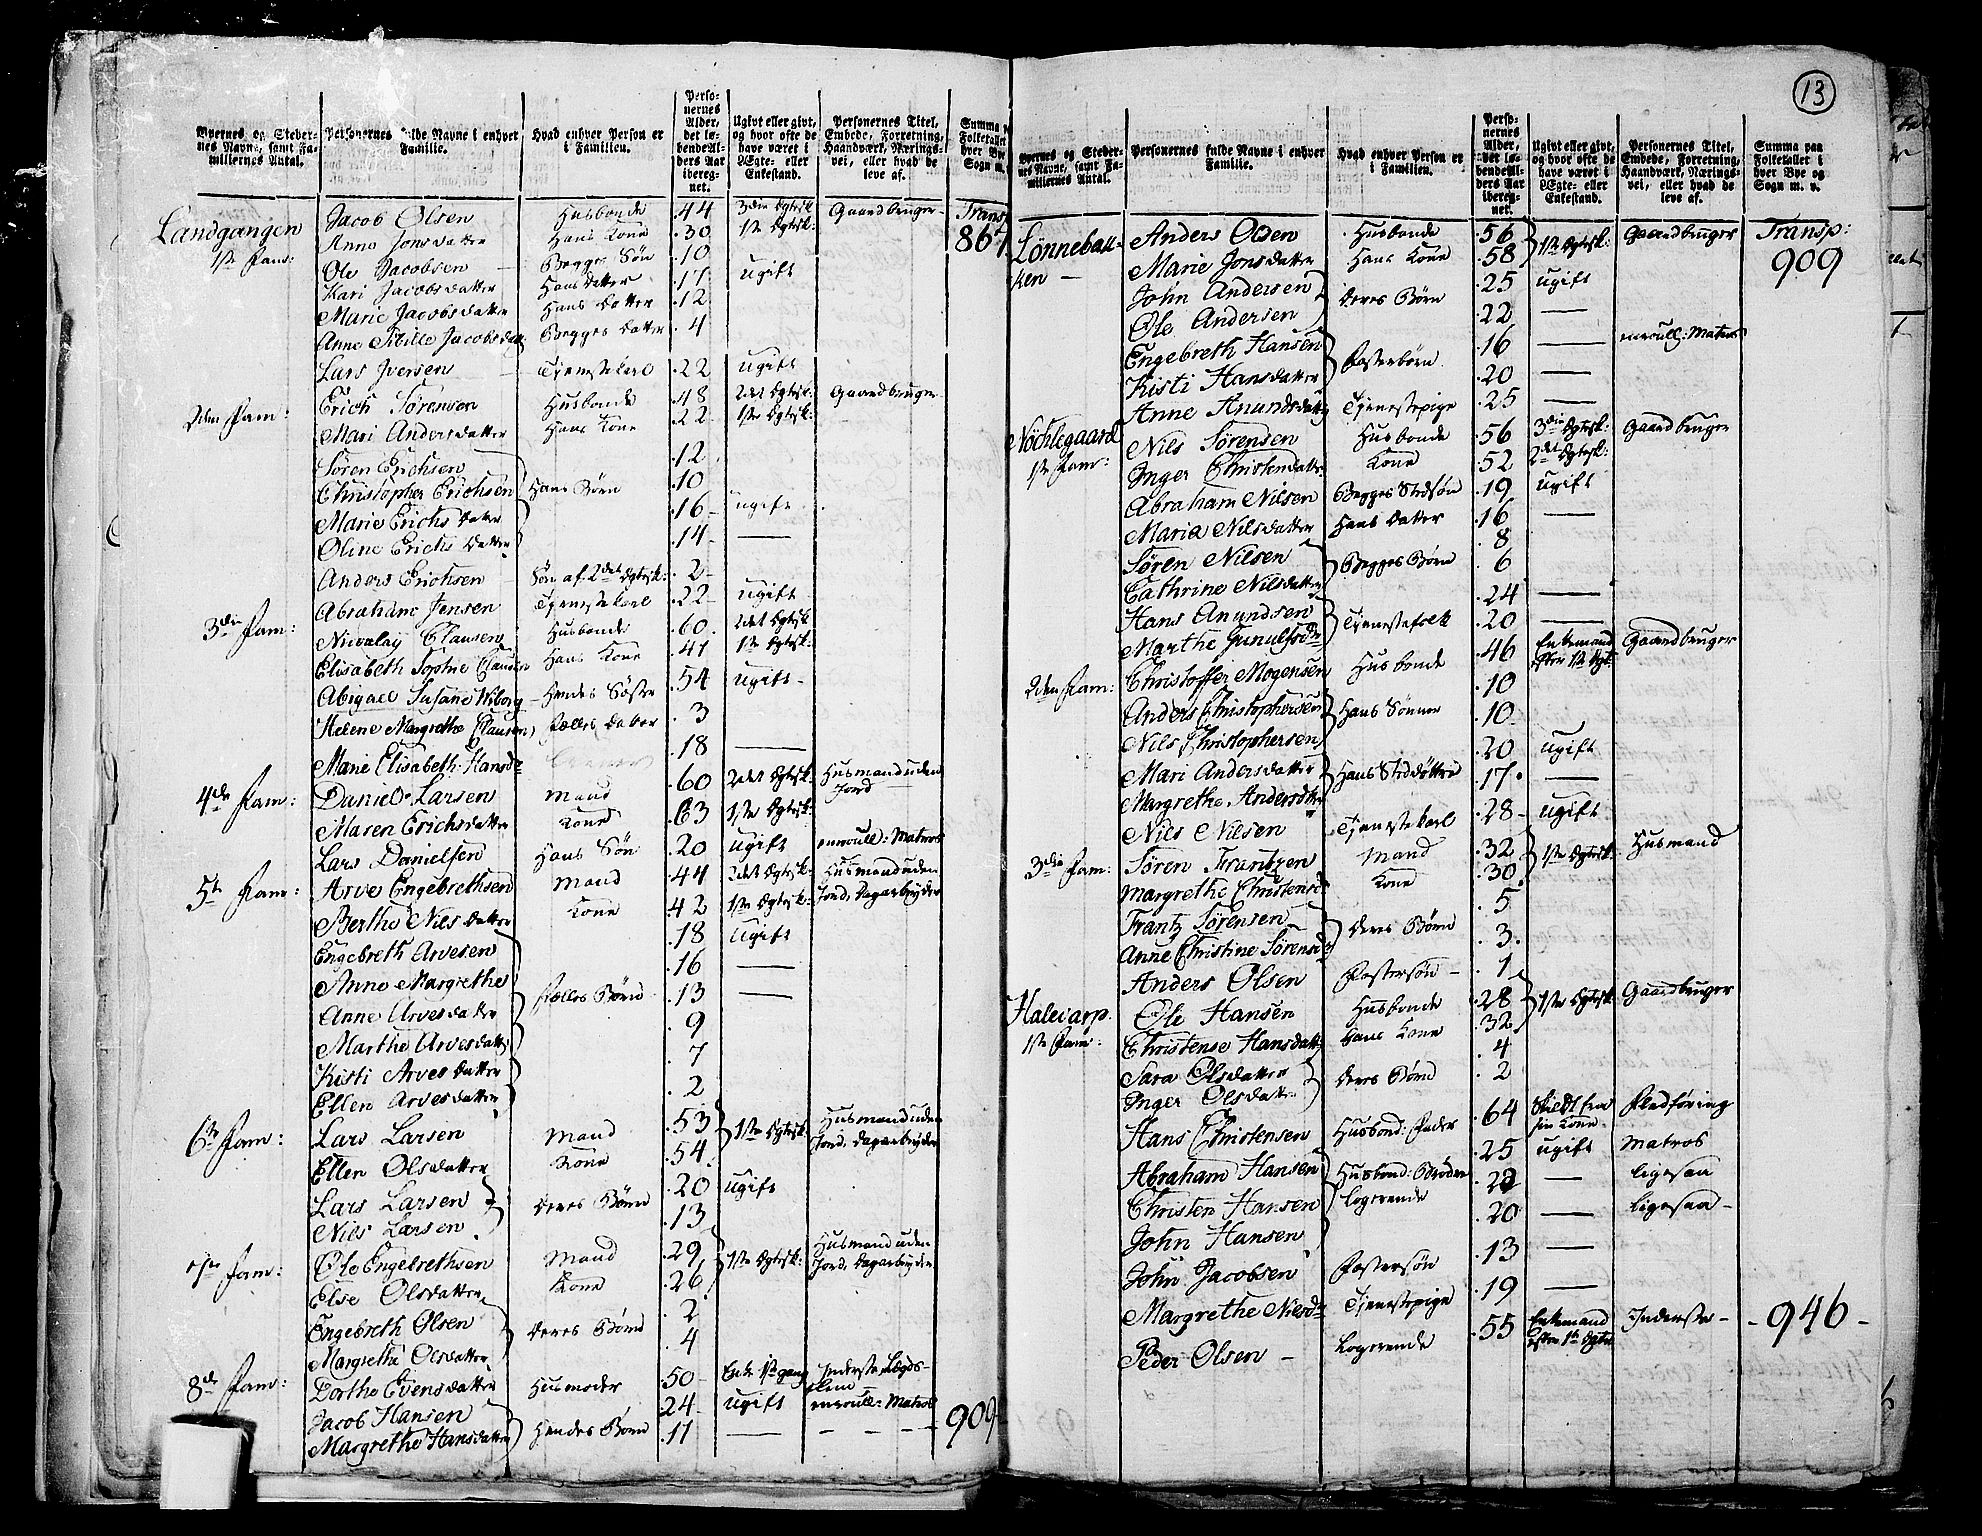 13
Byernes og Stedernes Navne, samt Familiernes Antal. | Personernes fulde Navne i enhver Familie. | Hvad enhver Person er i Familien. | Personernes Alder, det løbende Alders Aar iberegnet. | Ugivt eller givt, og hvor ofte de have været i Ægte- eller Enkestand. | Personernes Titel, Embede, Forretning, Haandværk, Næringsvei, eller hvad de leve af. | Summa Folketallet hver Bye Sogn m.
Landgangen | Jacob Olsen | Husbonde | 44 | 3die Ægtesk | Gaardbruger | Transp
Anne Jonsdatter | Hans Kone | 30 | 1ste Ægtesk: | 867
1ste Fam: | Ole Jacobsen | Begges Søn | 10
Kari Jacobsdatter | Hans datter | 17 | ugift
Marie Jacobsdatter | Hans datter | 12
Anne Sibille Jacobsdatt | Begges datter | 4
Lars Iversen | Tienestekarl | 22 | ugift
2den Fam: | Erich Sørensen | Husbonde | 48 | 2det Ægtesk: | Gaardbruger
Mari Andersdatter | Hans Kone | 22 | 1ste Ægtesk:
Søren Erichsen | 12
Christopher Erichsen | Hans Børn | 10
Marie Erichs datter | 16 | ugift
Oline Erichs datter | 14 | —
Anders Erichsen | Søn af 2det Ægtesk: | 2
Abraham Jensen | Tjenestekarl | 22 | ugift
3die Fam: | Nicolay Clausen | Husbonde | 60 | 2det Ægtesk
Elisabeth Sophie Clausen | Hans Kone | 41 | 1ste Ægtesk:
Abigael Susane Wiborg | Hendes Søster | 54 | ugift
Helene Margrethe Clausen | Fælles datter | 3
Marie Elisabeth Hansdr | 18 | —
4de Fam: | Daniel Larsen | Mand | 60 | 2det Ægtesk: | Husmand uden Jord
Maren Erichsdatter | Kone | 63 | 1ste Ægtesk:
Lars Danielsen | Hans Søn | 20 | ugift | enroull: Matros
5te Fam: | Arve Engebrethsen | Mand | 44 | 2det Ægtesk: | Husmand uden
Berthe Nilsdatter | Kone | 42 | 1ste Ægtesk: | Jord, Dagarbeyder
Engebreth Arvesen | 18 | ugift
Anne Margrethe | 16 | —
Anne Arvesdatter | Fælles Børn | 13 | —
Marthe Arvesdatter | 9
Kisti Arvesdatter | 7
Ellen Arvesdatter | 2
6te Fam: | Lars Larsen | Mand | 53 | 1ste Ægtesk | Husmand uden
Ellen Olsdatter | Kone | 54 | Jord, Dagarbeyder
Lars Larsen | Deres Børn | 20 | ugift
Nils Larsen | 13
7de Fam: | Ole Engebrethsen | Mand | 29 | 1ste Ægtesk: | Husmand uden
Else Olsdatter | Kone | 26 | Jord, Dagarbeyder
Engebreth Olsen | Deres Børn | 2
Margrethe Olsdatter | 4
8de Fam: | Dorthe Evensdatter | Husmoder | 50 | Enke 1ste gang | Inderste Lægds-lem
Jacob Hansen | Hendes Børn | 24 | ugift | enroull: Matros
Margrethe Hansdatter | 11 | — | — | 909
Byernes og Stedernes Navne, samt Familiernes Antal. | Personernes fulde Navne i enhver Familie. | Hvad enhver Person er i Familien. | Personernes Alder, det løbende Alders Aar iberegnet. | Ugivt eller givt, og hvor ofte de have været i Ægte- eller Enkestand. | Personernes Titel, Embede, Forretning, Haandværk, Næringsvei, eller hvad de leve af. | Summa paa Folketallet i hver Bye og Sogn m. v.
Lønnebakken | Anders Olsen | Husbonde | 56 | 1ste Ægtesk: | Gaardbruger | Transp:
Marie Jonsdatter | Hans Kone | 58 | 909
John Andersen | Deres Børn | 25 | ugift
Ole Andersen | 22 | —
Engebreth Hansen | Fosterbørn | 16 | — | enroull: Matros
Kisti Hansdatter | 20 | —
Anne Anundsdatter | Tjenestepige | 25 | —
Nöchlegaard | Nils Sørensen | Husbonde | 56 | 3die Ægtesk: | Gaardbruger
1ste Fam: | Inger Christensdatter | Kone | 52 | 2det Ægtesk:
Abraham Nilsen | Begges Stedsøn | 19 | ugift
Maria Nilsdatter | Hans datter | 16 | —
Søren Nilsen | Begges Børn | 8
Cathrine Nilsdatter | 6
Hans Anundsen | Tjenestefolk | 24 | —
Marthe Gunulfsdr | 20 | —
2den Fam: | Christoffer Mogensen | Husbonde | 46 | Enkemand efter 1ste Ægt: | Gaardbruger
Anders Christophersen | Hans Sønner | 10
Nils Christophersen | 10
Mari Andersdatter | Hans Steddøttre | 20 | ugift
Margrethe Andersdatter | 17 | —
Nils Nilsen | Tjenestekarl | 28 | ugift
3die Fam: | Søren Frantzen | Mand | 32 | 1ste Ægtesk: | Husmand
Margrethe Christensd | Kone | 30
Frantz Sørensen | Deres Børn | 5
Anne Christine Sørensdr | 3
Anders Olsen | Fostersøn | 1
Haleiarp | Ole Hansen | Husbonde | 28 | 1ste Ægtesk: | Gaardbruger
1ste Fam: | Christense Hansdatter | Hans Kone | 32
Sara Olsdatter | Deres Børn | 4
Inger Olsdatter | 2
Hans Christensen | Husbond: Fader | 64 | Skildt fra sin Kone | Fledføring
Abraham Hansen | Husbond: Brødre | 25 | ugift | Matros
Christen Hansen | logerende | 22 | — | ligesaa
John Hansen | 20 | — | ligesaa
John Jacobsen | Fostersøn | 13 | —
Margrethe Nilsdr | Tjenestepige | 19 | —
Peder Olsen | Logerende | 55 | Enkemand efter 1ste Ægtesk | Inderste | 946